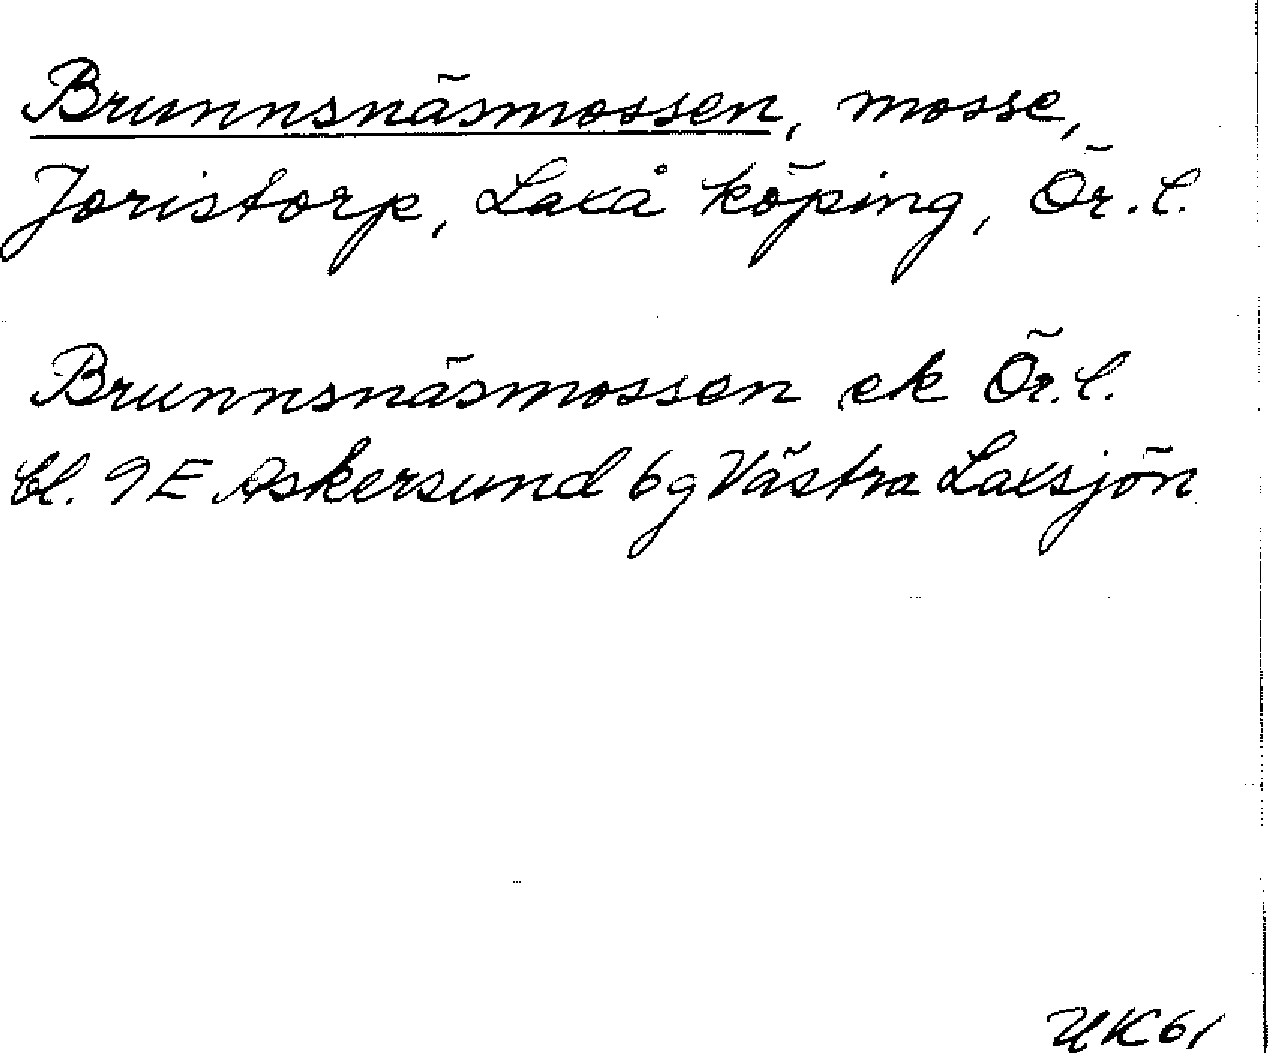 Brunnsnäsmossen, mosse,
Joristorp, Laxå köping, Ör.l.
Brunnsnäsmossen ek Ör.l.
bl. 9E Askersund 6g Västra Laxsjön
UK61